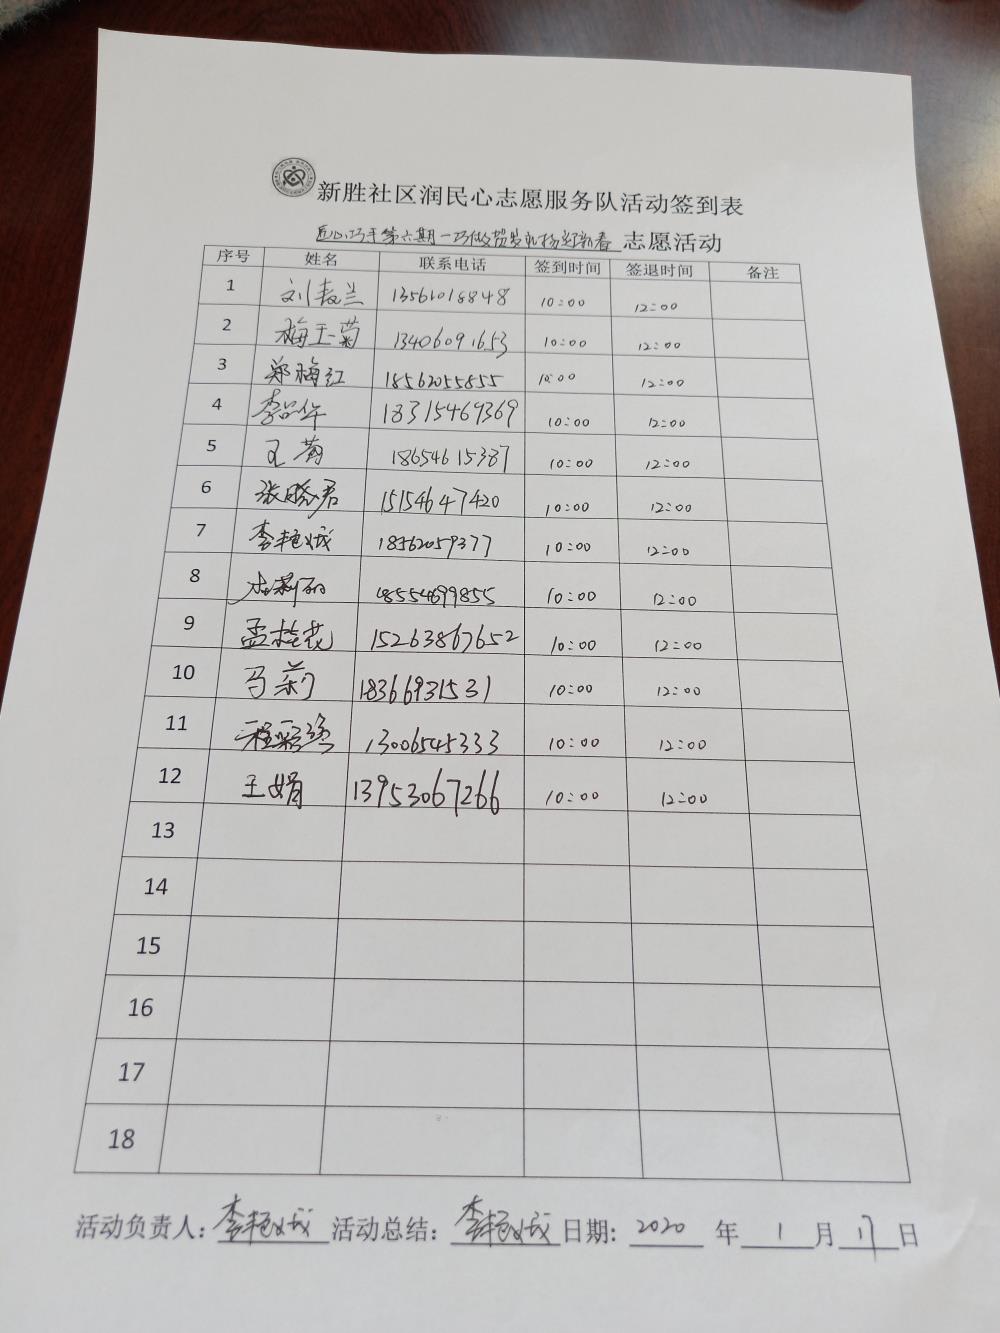 新胜社区润民心志愿服务队活动签到表
匠心巧手第六期一巧做贺岁礼物迎新春 志愿活动
序号 姓名 联系电话 签到时间 签退时间 备注
1 刘表兰 13561018848 10:00 12:00
2 梅玉菊 13406091653 10:00 12:00
3 郑梅红 18562055855 10:00 12:00
4 李品华 18315469369 10:00 12:00
5 王菊 18654615387 10:00 12:00
6 张晓君 15154647420 10:00 12:00
7 李艳娥 18562059377 10:00 12:00
8 杜莉丽 18554699855 10:00 12:00
9 孟桂花 15263867652 10:00 12:00
10 马莉 18366931531 10:00 12:00
11 程彩 13006545333 10:00 12:00
12 王娟 13953067266 10:00 12:00
13
14
15
16
17
18
活动负责人:李艳娥 活动总结:李艳娥 日期: 2020 年 1 月 17 日